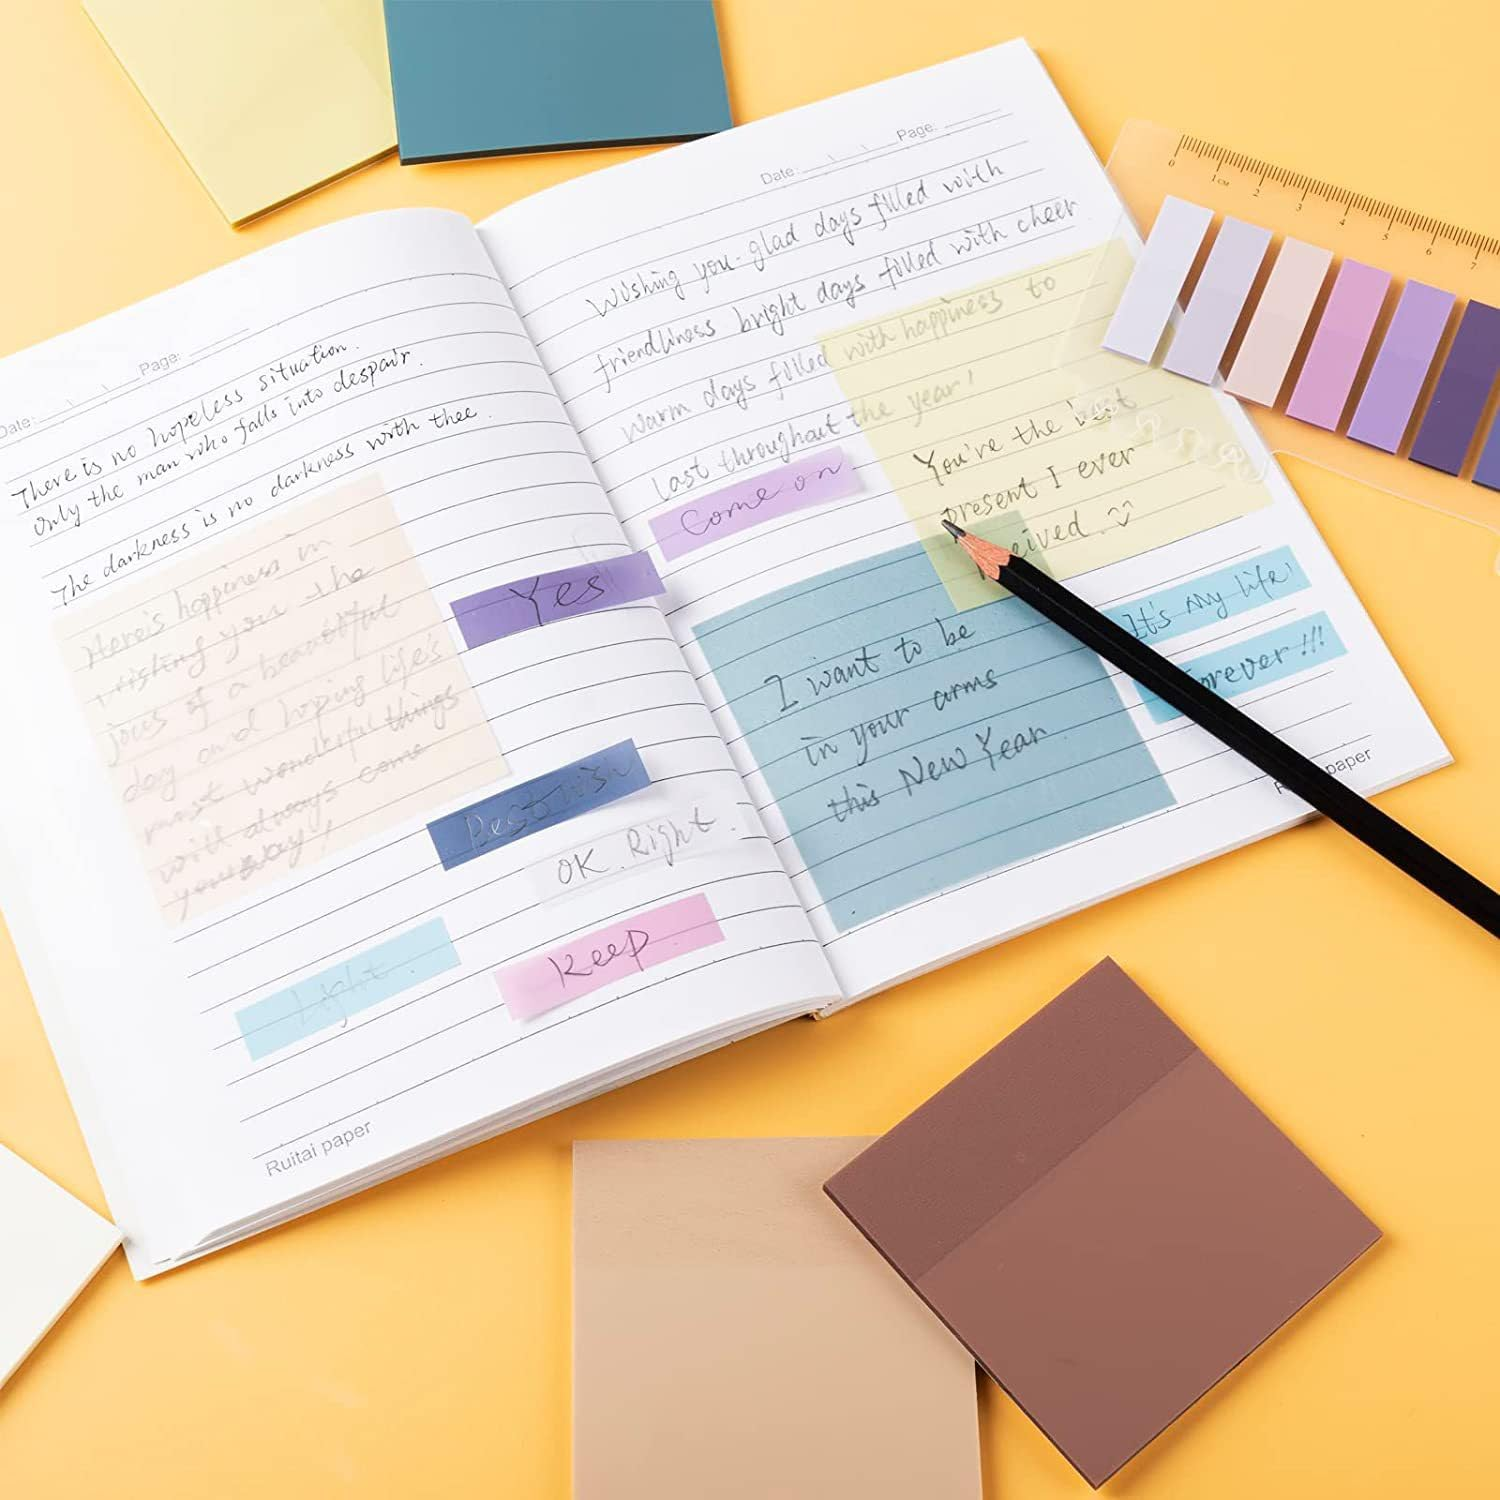 Date: \ \ Page:
There is no hopeless situation.
Only the man who falls into despair.
The darkness is no darkness with thee.
Here's happiness in
you the
joces of a beautiful
day and hoping life's
most wonderful things
will always come
Yes
Best wish
OK. Right.
Light
Keep
Ruitai paper
Date: \ \ Page:
Wishing you glad days filled with
friendliness bright days filled with cheer
warm days filled with happiness to
Last throughout the year!
Come on
You're the best
present I ever
eived.
I want to be
in your arms
this New Year.
It's my life!
orever!!!
paper
0 1CM 2 3 4 5 6 7